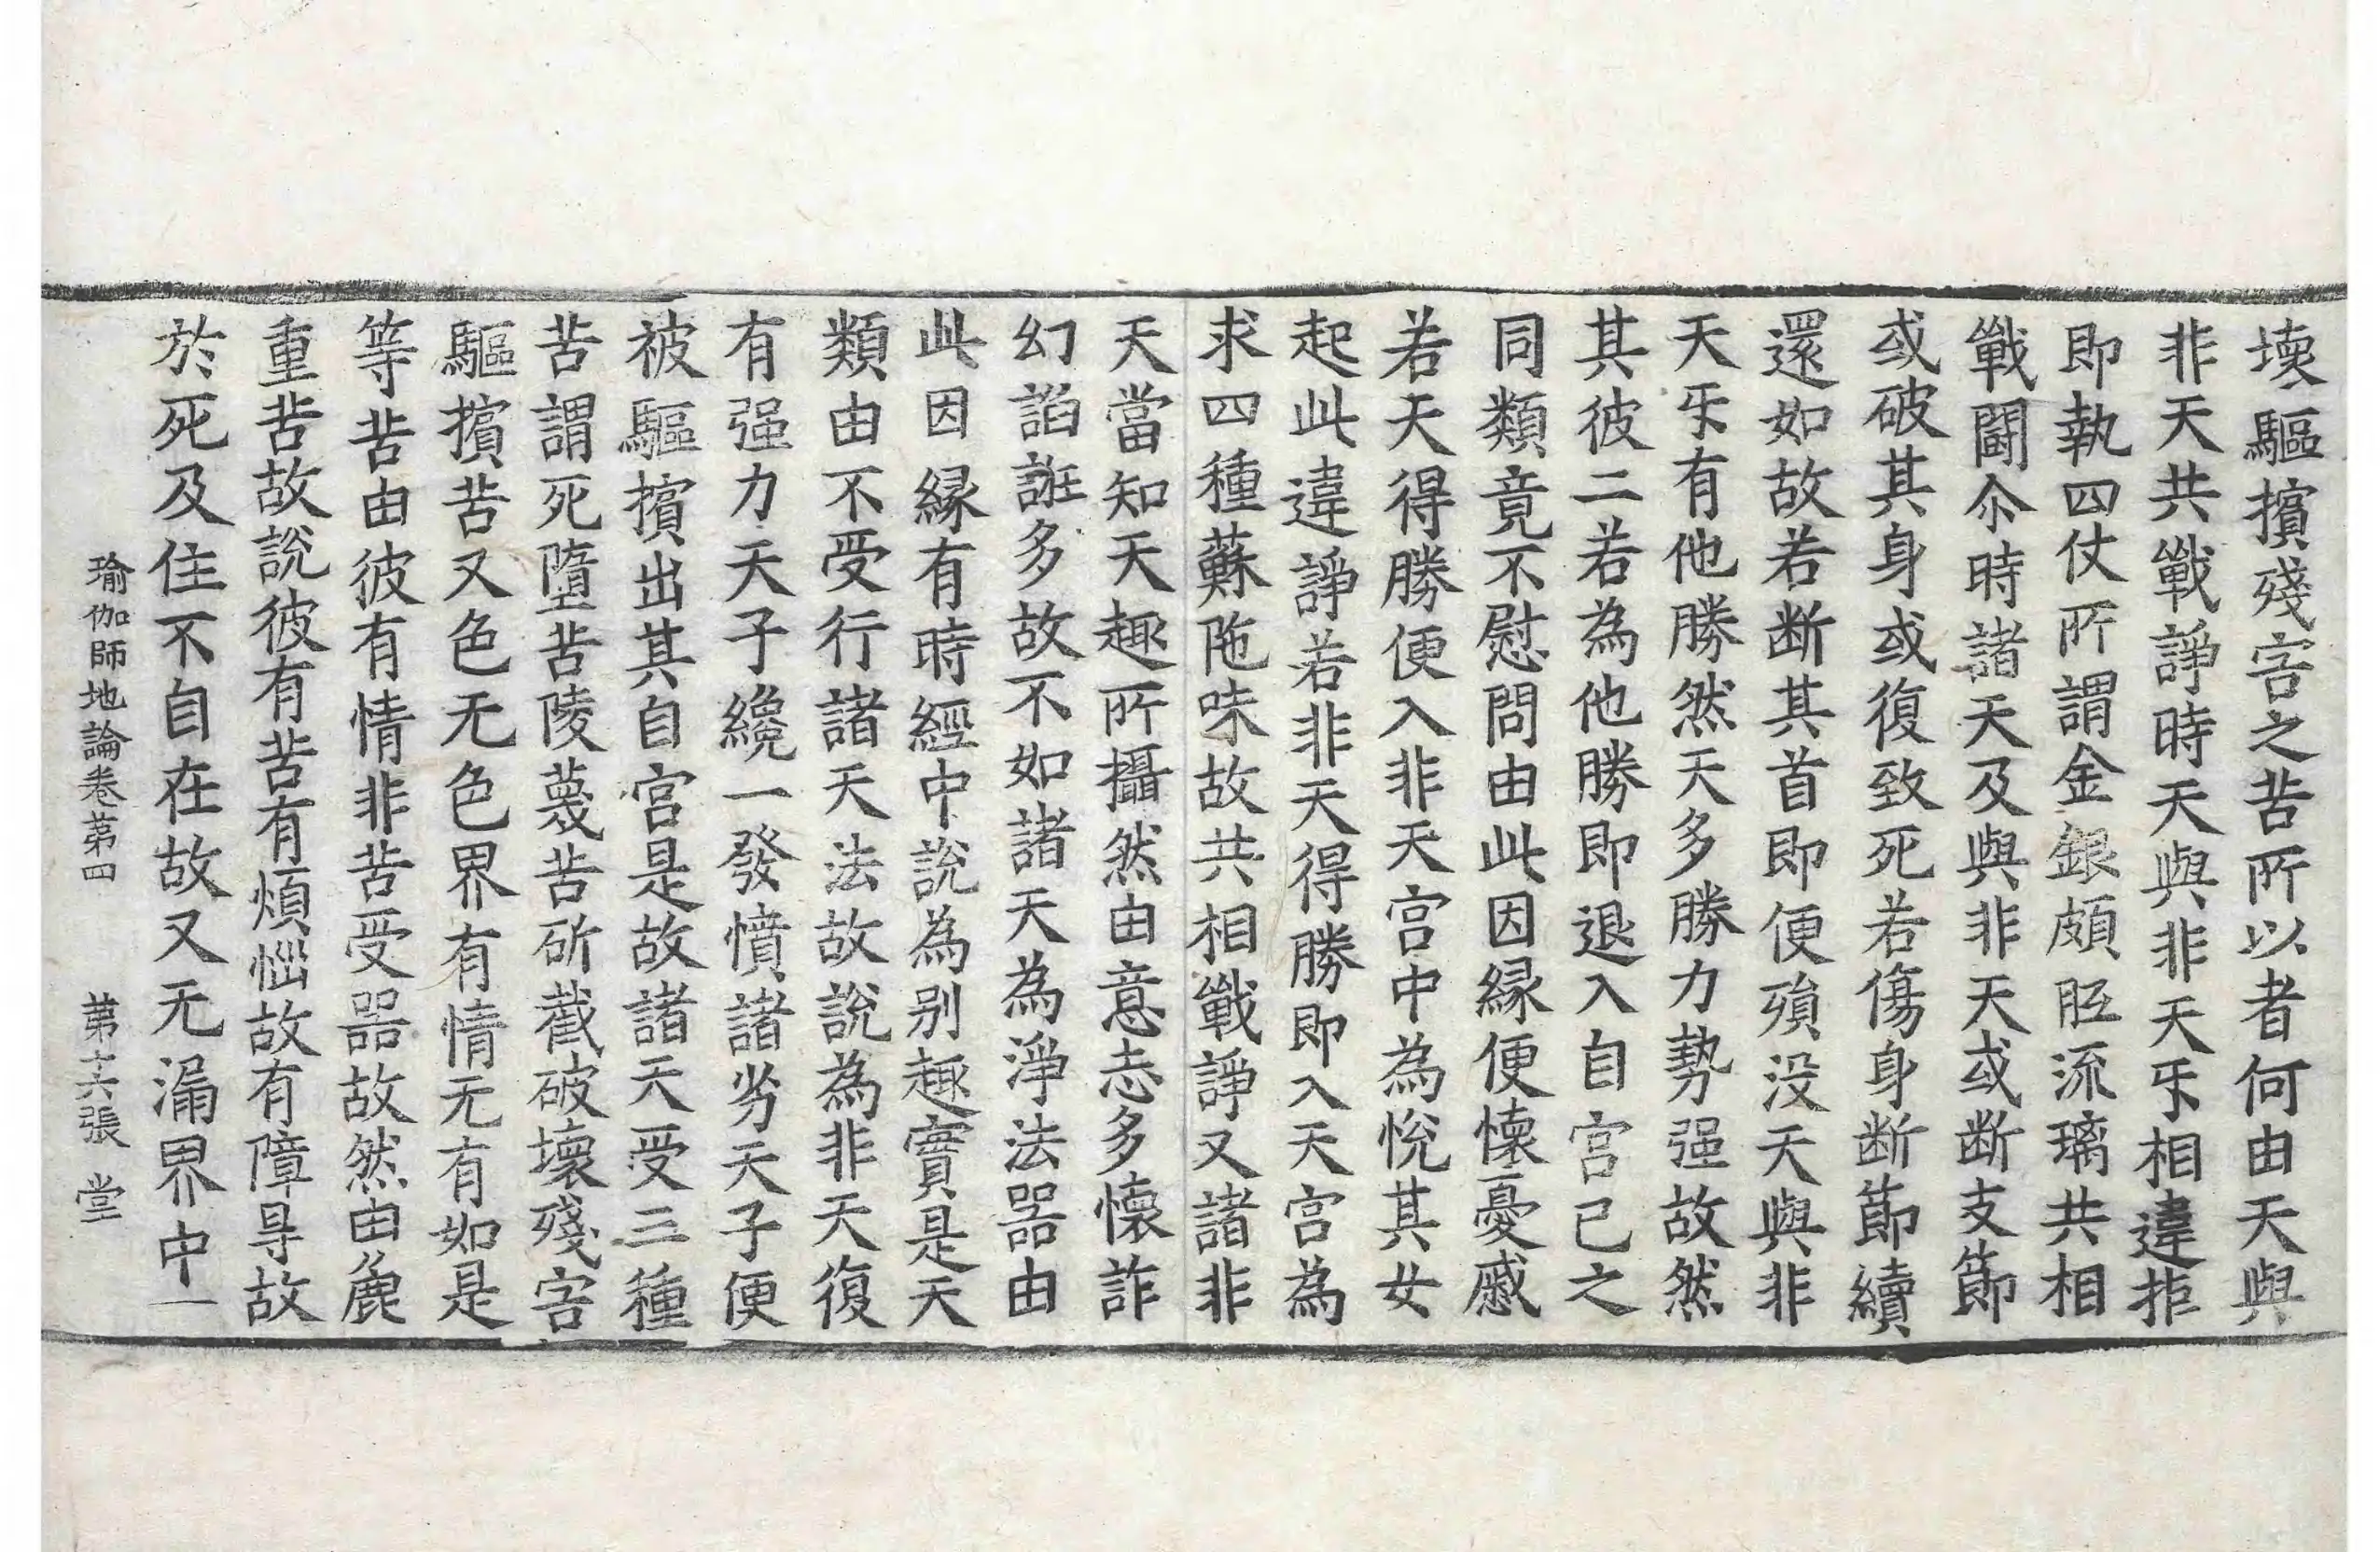 壞驅擯殘害之苦所以者何由天與
非天共戰諍時天與非天㸦相違拒
即執四仗所謂金銀頗胝流璃共相
戰鬪尒時諸天及與非天或断支節
或破其身或復致死若傷身断節續
還如故若断其首即便殞没天與非
天㸦有他勝然天多勝力勢强故然
其彼二若為他勝即退入自宫己之
同類竟不慰問由此因縁便懷憂慼
若天得勝便入非天宫中為悅其女
起此違諍若非天得勝即入天宫為
求四種蘇陁味故共相戰諍又諸非
天當知天趣所攝然由意志多懷詐
幻諂誑多故不如諸天為淨法器由
此因縁有時經中說為别趣實是天
類由不受行諸天法故說為非天復
有强力天子纔一發憤諸劣天子便
被驅擯出其自宫是故諸天受三種
苦謂死墮苦陵蔑苦斫截破壞殘害
驅擯苦又色无色界有情无有如是
等苦由彼有情非苦受器故然由麁
重苦故說彼有苦有煩惱故有障㝵故
於死及住不自在故又无漏界中一
瑜伽師地論卷苐四　苐十六張　堂